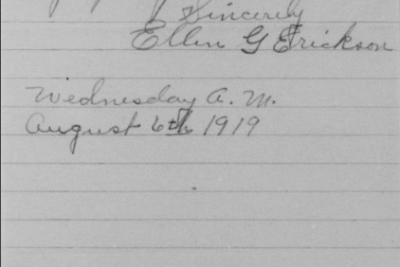 Sincerely
Ellen G Erickson
Wednesday A.M.
August 6th 1919